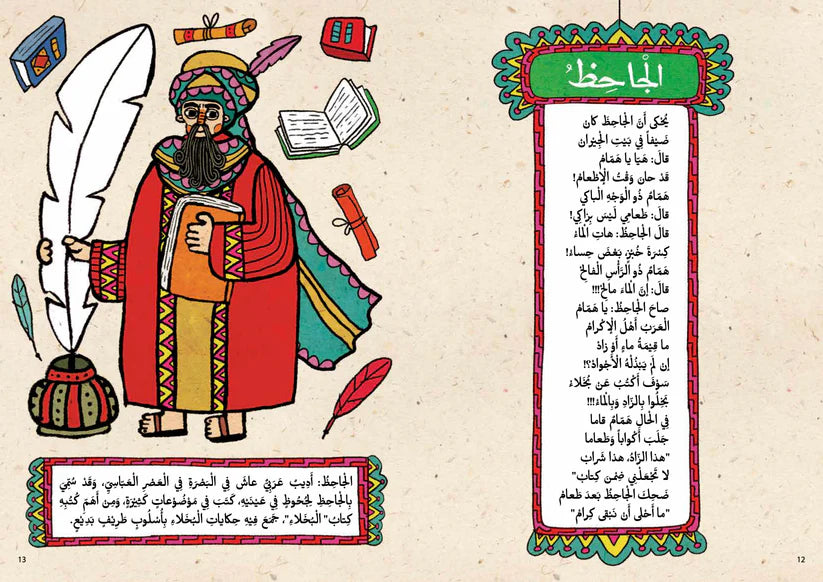 الْجَاحِظُ
يُحْكى أَنَّ الْجَاحِظَ كان
ضَيْفاً فِي بَيْتِ الْجِيْران
قالَ: هَيّا يا هَمّامُ
قَدْ حانَ وَقْتُ الْإِطْعامُ!
هَمّامُ ذُو الْوَجْهِ الْباكي
قالَ: طَعامِي لَيْسَ بِزاكِي!
قالَ الْجاحِظُ: هاتِ الْماءَ
كِسْرَةَ خُبْزٍ، بَعْضَ حِساءْ!
هَمّامُ ذُو الرَّأْسِ الْفالِحْ
قالَ: إِنَّ الْماءَ مالِحْ!!!
صاحَ الْجاحِظُ: يا هَمّامُ
الْعَرَبُ أَهْلُ الْإِكْرامُ
ما قِيْمَةُ ماءٍ أَوْ زادْ
إِن لَمْ يَبْذُلْهُ الْأَجْوادْ؟!
سَوْفَ أَكْتُبُ عَنْ بُخَلاءْ
بَخِلُوا بِالزّادِ وَبِالْماءْ!!!
فِي الْحالِ هَمّامُ قاما
جَلَبَ أَكْواباً وَطَعاما
"هذا الزّادُ، هذا شَرابُ
لا تَجْعَلْنِي ضِمْنَ كِتابْ"
ضَحِكَ الْجاحِظُ بَعدَ طَعامْ
"ما أَحْلى أَن نَبْقى كِرامْ"
12
الجَاحِظُ: أَدِيبٌ عَرَبِيٌّ عاشَ فِي الْبَصْرَةِ فِي الْعَصْرِ الْعَبّاسِيِّ، وَقَدْ سُمِّيَ
بِالْجاحِظِ لِجُحُوظٍ فِي عَيْنَيْهِ، كَتَبَ فِي مَوْضُوْعاتٍ كَثِيْرَةٍ، وَمِنْ أَهَمِّ كُتُبِهِ
كِتابُ "الْبُخَلاءِ"، جَمَعَ فِيْهِ حِكاياتِ الْبُخَلاءِ بِأُسْلُوبٍ ظَرِيْفٍ بَدِيْعٍ.
13